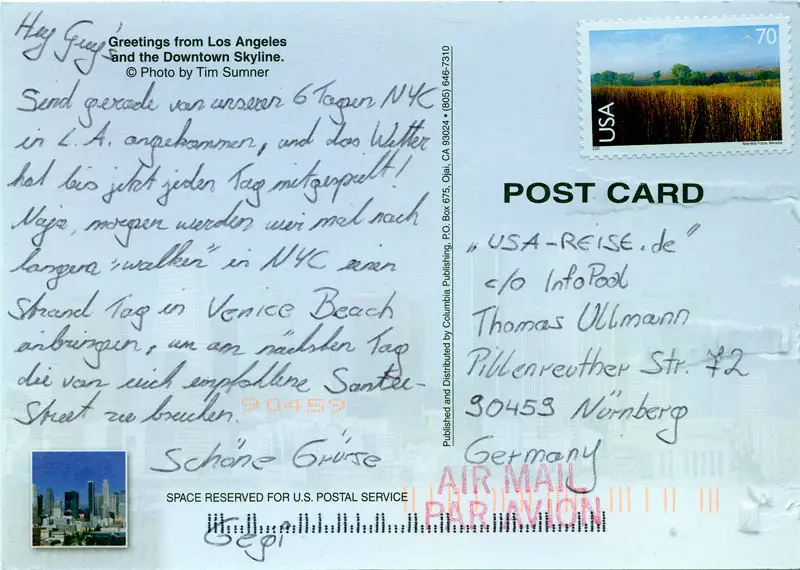 Hey Guy's
Greetings from Los Angeles
and the Downtown Skyline.
© Photo by Tim Sumner
Sind gerade von unseren 6 Tagen NYC
in L.A. angekommen, und das Wetter
hat bis jetzt jeden Tag mitgespielt!
Naja, morgen werden wir mal nach
langem "walken" in NYC einen
Strand Tag in Venice Beach
anbringen, um am nächsten Tag
die von euch empfohlene Santee-
Street zu besuchen.
90459
Schöne Grüße
SPACE RESERVED FOR U.S. POSTAL SERVICE
Gegi
Published and Distributed by Columbia Publishing, P.O. Box 675, Ojai, CA 93024 • (805) 646-7310
USA
70
POST CARD
„USA-REISE.de"
c/o InfoPool
Thomas Ullmann
Pillenreuther Str. 72
90459 Nürnberg
Germany
AIR MAIL
PAR AVION